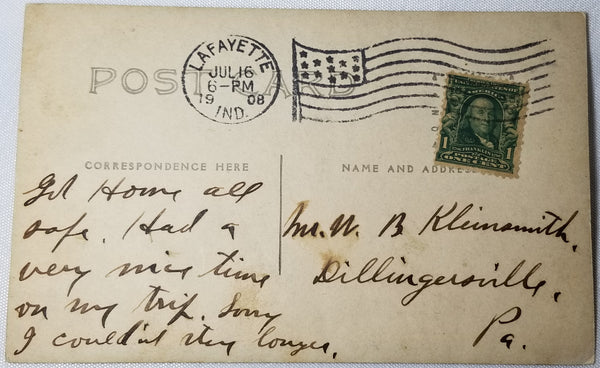 POST CARD
LAFAYETTE
JUL 16
6-PM
19 08
IND.
FRANKLIN
1 1
CORRESPONDENCE HERE
NAME AND ADDRESS
Got Home all
safe. Had a
very nice time
on my trip. Sorry
I couldn't stay longer.
Mr. W. B Kleinsmith,
Dillingersville,
Pa.